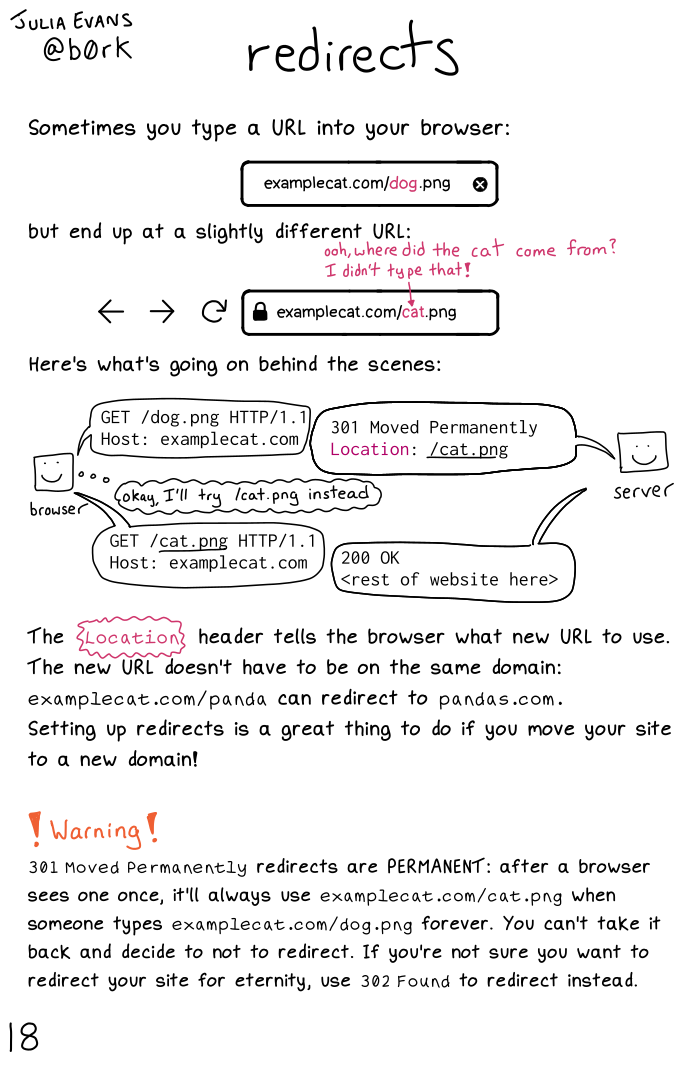 JULIA EVANS
@b0rk
redirects
Sometimes you type a URL into your browser:
examplecat.com/dog.png
but end up at a slightly different URL:
ooh, where did the cat come from?
I didn't type that!
examplecat.com/cat.png
Here's what's going on behind the scenes:
GET /dog.png HTTP/1.1
Host: examplecat.com
301 Moved Permanently
Location: /cat.png
browser
server
okay, I'll try /cat.png instead
GET /cat.png HTTP/1.1
Host: examplecat.com
200 OK
<rest of website here>
The Location header tells the browser what new URL to use.
The new URL doesn't have to be on the same domain:
examplecat.com/panda can redirect to pandas.com.
Setting up redirects is a great thing to do if you move your site
to a new domain!
! Warning!
301 Moved Permanently redirects are PERMANENT: after a browser
sees one once, it'll always use examplecat.com/cat.png when
someone types examplecat.com/dog.png forever. You can't take it
back and decide to not to redirect. If you're not sure you want to
redirect your site for eternity, use 302 Found to redirect instead.
18